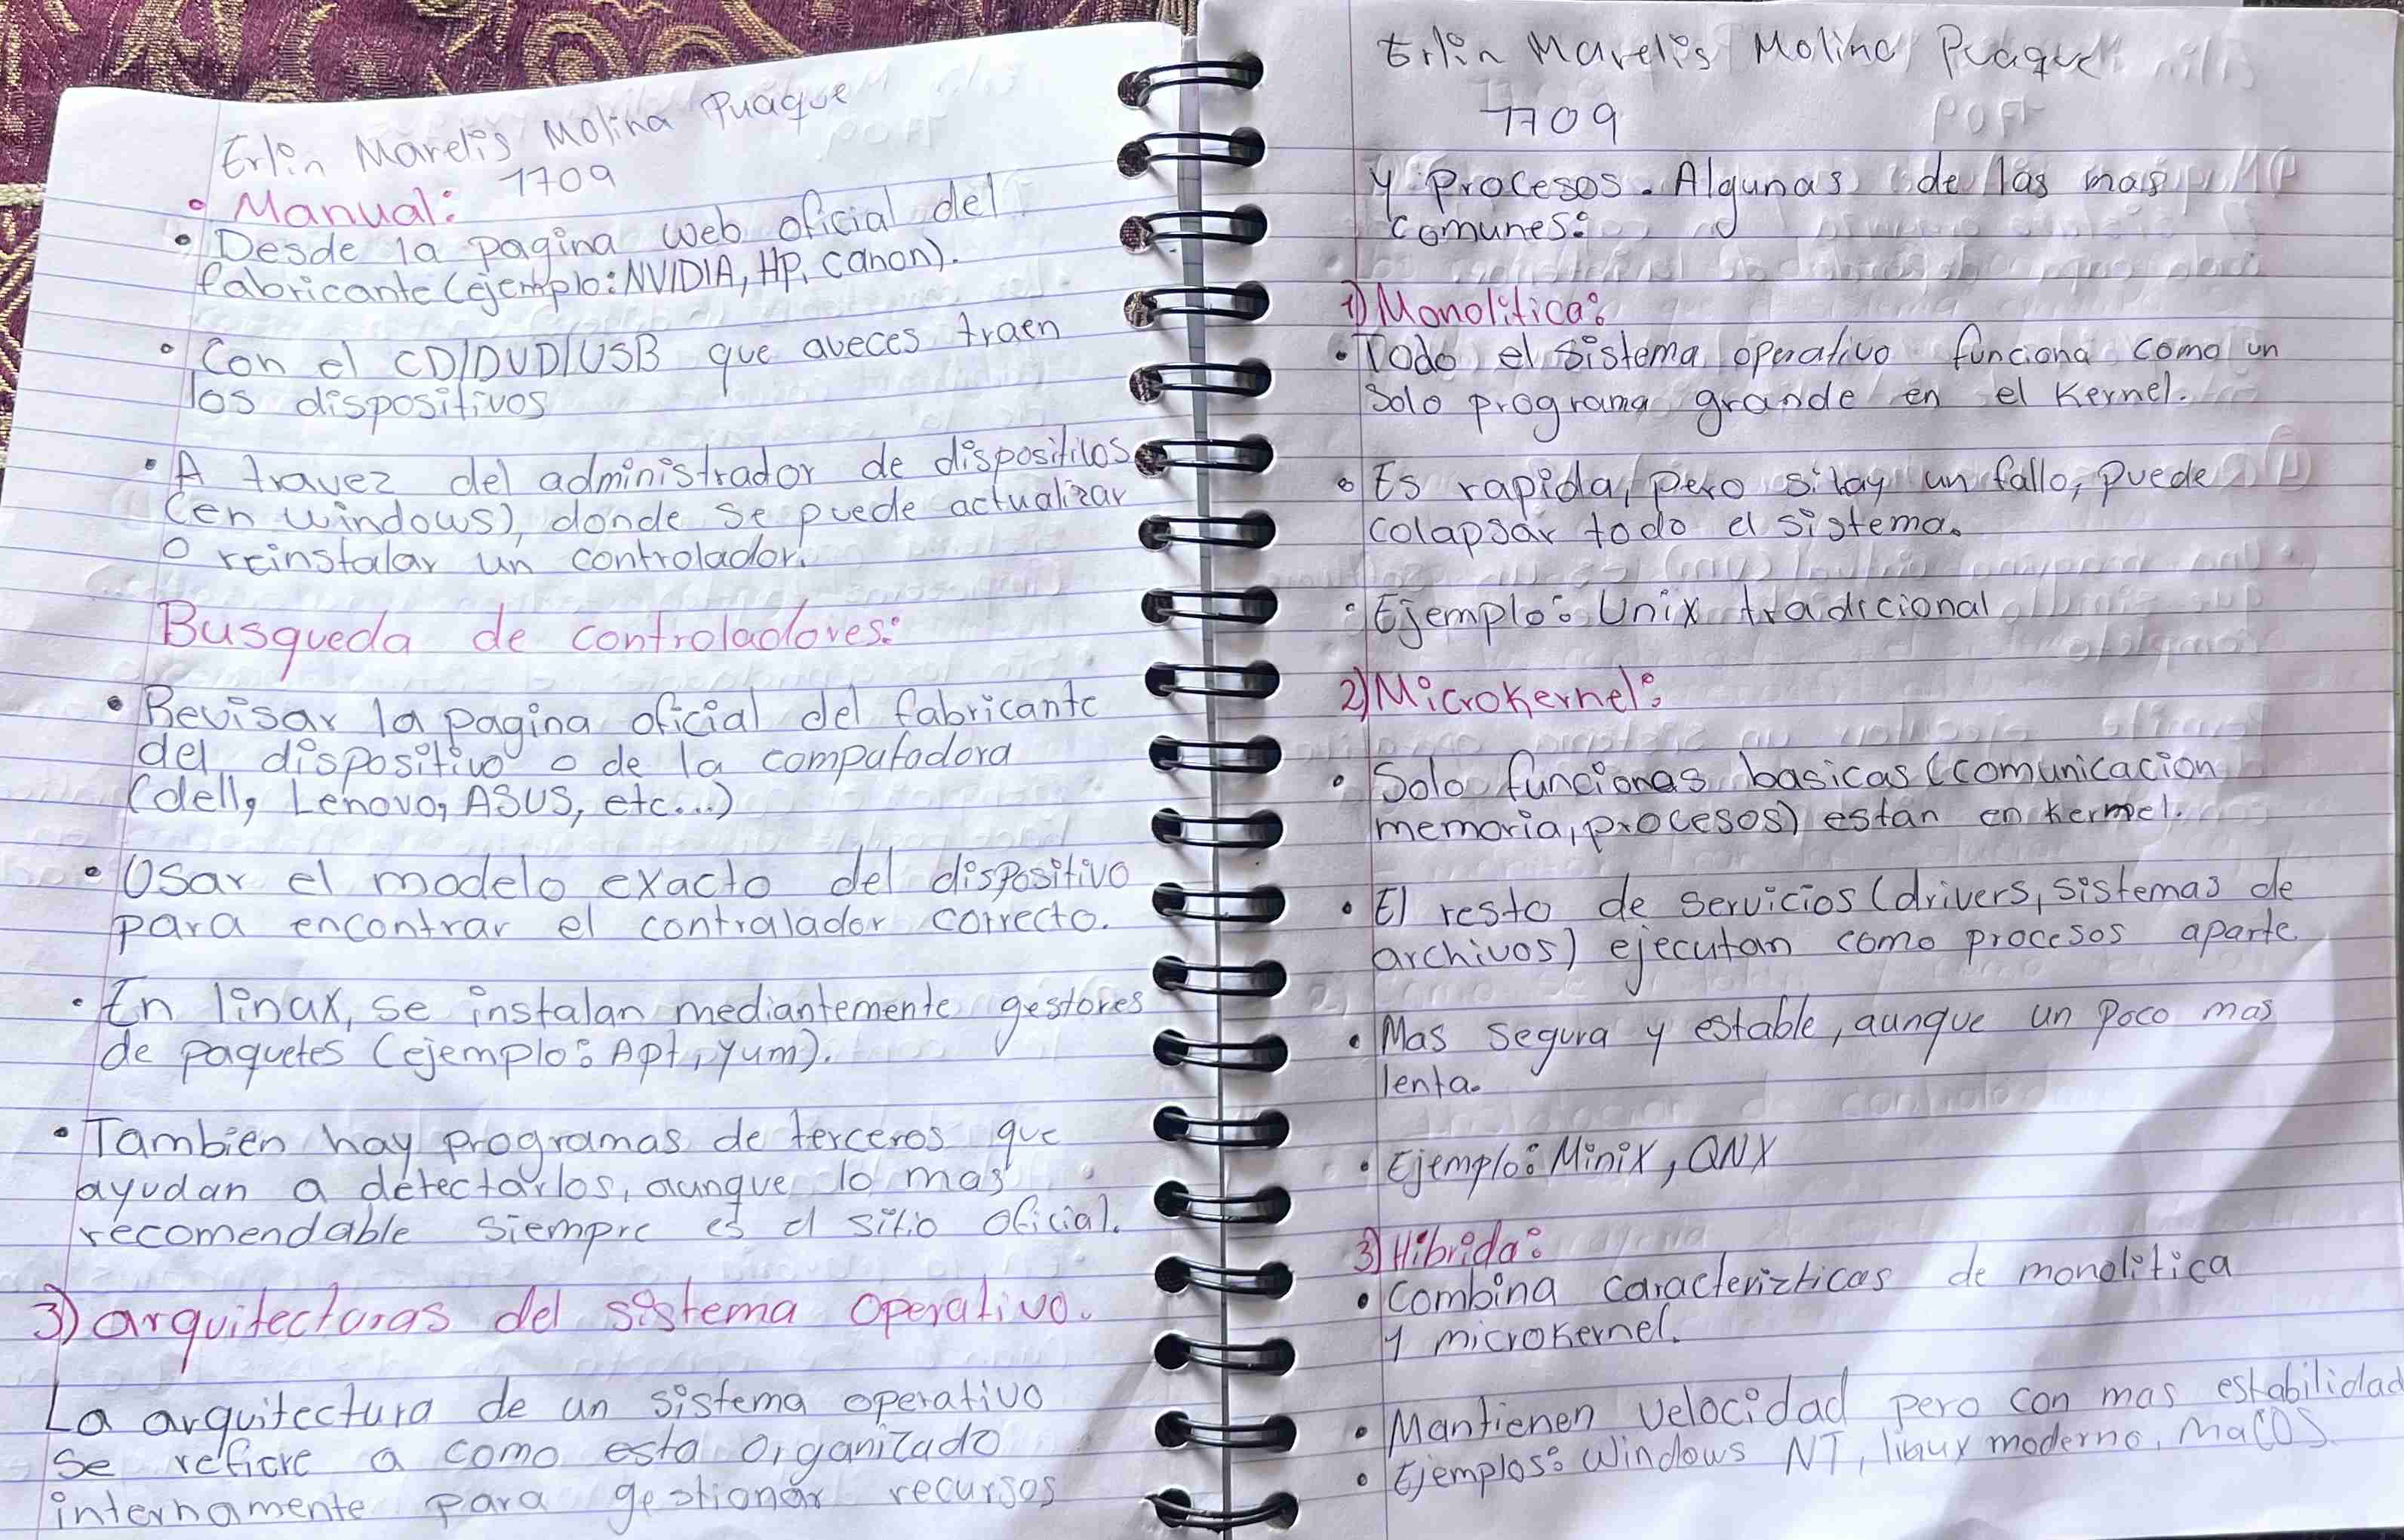 Erlin Marelis Molina Puaque
1709
• Manual:
• Desde la pagina web oficial del
fabricante (ejemplo: NVIDIA, HP, canon).
• Con el CD/DVD/USB que aveces traen
los dispositivos
• A travez del administrador de dispositilos
(en windows), donde se puede actualizar
o reinstalar un controlador.
Busqueda de controladores:
• Revisar la pagina oficial del fabricante
del dispositivo o de la computadora
(dell, Lenovo, ASUS, etc...)
• Usar el modelo exacto del dispositivo
para encontrar el contralador correcto.
• En linax, se instalan mediantemente gestores
de paquetes (ejemplo: Apt, yum).
• Tambien hay programas de terceros que
ayudan a detectarlos, aunque lo mas
recomendable siempre es el sitio oficial.
3) arquitecturas del sistema operativo.
La arquitectura de un sistema operativo
se refiere a como esta organizado
internamente para gestionar recursos
Erlin Marelis Molina Puaque
1709
y procesos. Algunas de las mas
comunes:
1) Monolitica:
• Todo el sistema operativo funciona como un
solo programa grande en el Kernel.
• Es rapida, pero si hay un fallo, puede
colapsar todo el sistema.
• Ejemplo: Unix tradicional
2) Microkernel:
• Solo funcionas basicas (comunicacion
memoria, procesos) estan en kermel.
• El resto de servicios (drivers, sistemas de
archivos) ejecutan como procesos aparte
• Mas segura y estable, aunque un poco mas
lenta.
• Ejemplo: Minix, QNX
3) Hibrida:
• Combina caracterizticas de monolitica
y microkernel.
• Mantienen velocidad pero con mas estabilidad
• Ejemplos: Windows NT, linux moderno, MacOS.